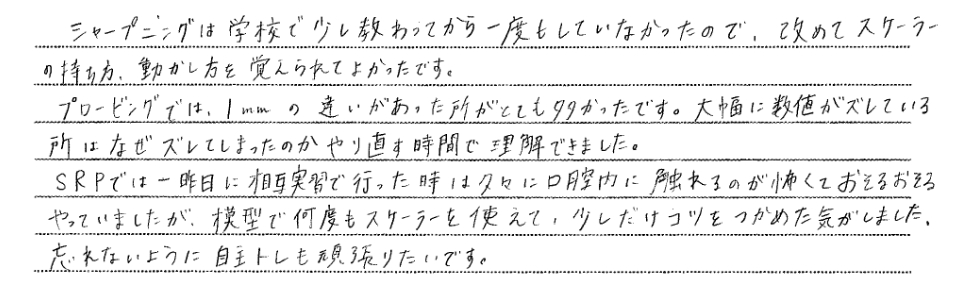 シャープニングは学校で少し教わってから一度もしていなかったので、改めてスケーラー
の持ち方、動かし方を覚えられてよかったです。
プロービングでは、1mmの違いがあった所がとても多かったです。大幅に数値がズレている
所はなぜズレてしまったのかやり直す時間で理解できました。
SRPでは一昨日に相互実習で行った時は久々に口腔内に触れるのが怖くておそるおそる
やっていましたが、模型で何度もスケーラーを使えて、少しだけコツをつかめた気がしました。
忘れないように自主トレも頑張りたいです。